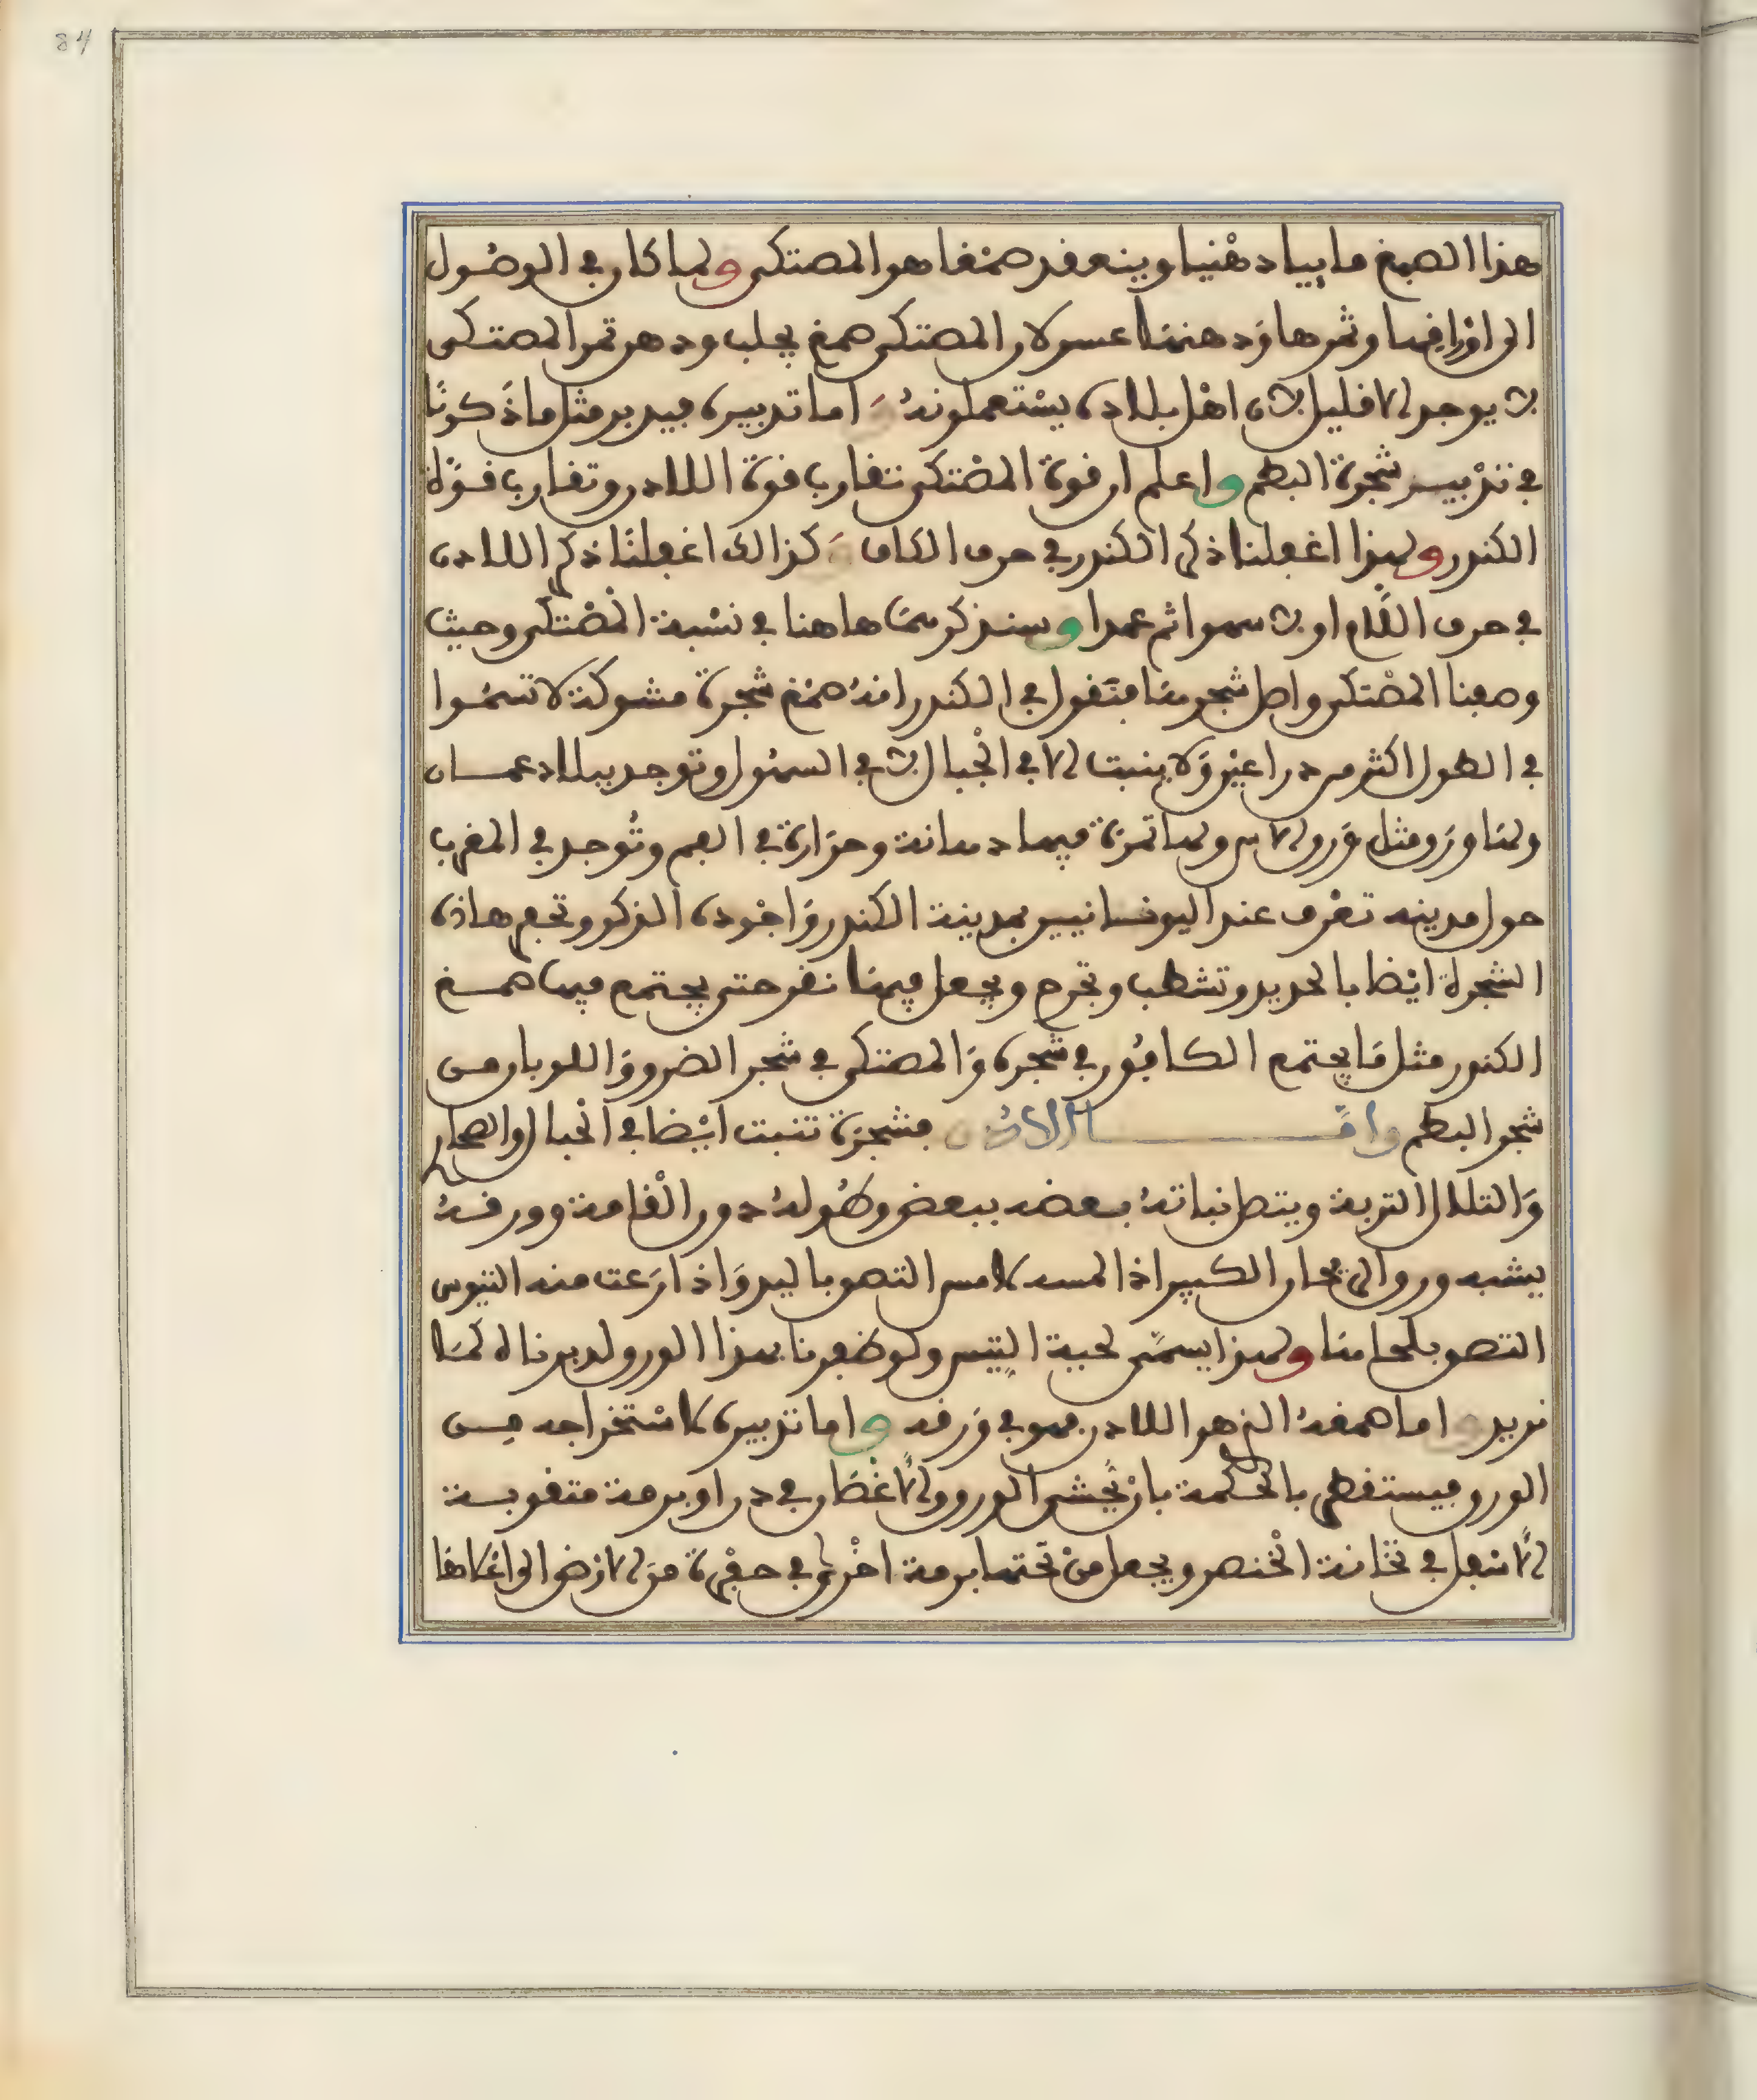 84
هذا الصمغ ما ييا دهنيا وينعقد صمغا هو المصتكى ولما كان في الوصول
الى اوراقها وثمرها ودهنها عسر لان المصتكى صمغ يجلب ودهن ثمر المصتكى
لا يوجد الا قليل لان اهل بلاده يستعملونه واما تدبيره فيدبر مثل ما ذكرنا
في تدبير شجرة البطم واعلم ان قوة المصتكى تقارب قوة اللادن وتقارب قوة
الكندر ولهذا اغفلنا ذكر الكندر في حرف الكاف وكذالك اغفلنا ذكر اللادن
في حرف اللام او لا سهوا ثم عمدا وسنذكرهما هاهنا في نسبة المصتكى وحيث
وصفنا المصتكى واصل شجرها فنقول في الكندر انه صمغ شجرة مشوكة لا تسموا
في الطول اكثر من دراعين ولا ينبت الا في الجبال لا في السهول وتوجد ببلاد عمان
ولها ورق مثل ورق الاس ولها ثمرة فيها دهانة وحرارة في الفم وتوجد في المغرب
حول مدينه تعرف عند اليونسانيين بمدينة الكندر واجوده الذكر وتجمع هاذه
الشجرة ايضا بالحديد وتشطب وتجرح ويجعل فيها نقر حتى يجتمع فيها صمغ
الكندر مثل ما يجتمع الكافور في شجره والمصتكى في شجر الضرو واللوبان من
شجر البطم واما اللادن فشجرة تنبت ايضا في الجبال والصحار
والتلال التربة ويتصل نباته بعضه ببعض وطوله دون القامة وورقه
يشبه ورق الحار الكبير اذا لمسه لامس التصق باليد واذا رعت منه التيوس
التصق بلحاها ولهذا يسمى لحية التيس ولو ظفرنا بهذا الورق لدبرناه كما
نريد واما صمغه الذ هو اللادن فهو في ورقه واما تدبيره لاستخراجه من
الورق فيستقطر بالحكمة بان يحشى الورق والاغصان في دن او برمة مثقوبة
الاسفل في ثخانة الخنصر ويجعل من تحتها برمة اخرى في حفرة من الارض الى